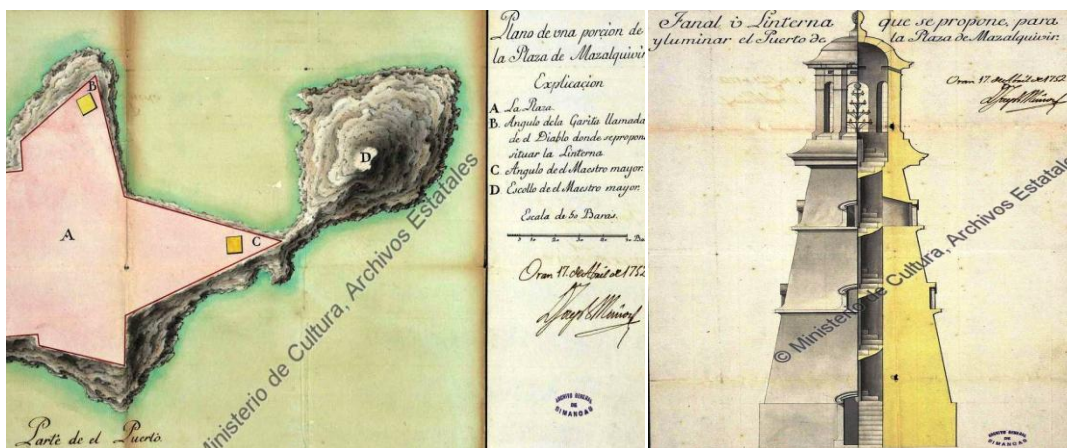 B
A
C
D
Parte de el Puerto.
Ministerio de Cultura, Archivos Estatales
Plano de vna porcion de
la Plaza de Mazalquivir
Explicacion
A La Plaza
B. Angulo de la Garita llamada
de el Diablo donde se propone
situar la Linterna
C Angulo de el Maestro mayor.
D Escollo de el Maestro mayor.
Escala de 50 Baras.
Oran 17. de Abril de 1752
ARCHIVO GENERAL
DE
SIMANCAS
Fanal ò Linterna que se propone, para
yluminar el Puerto de la Plaza de Mazalquivir.
Oran 17. de Abril de 1752
© Ministerio de Cultura, Archivos Estatales
ARCHIVO GENERAL
DE
SIMANCAS